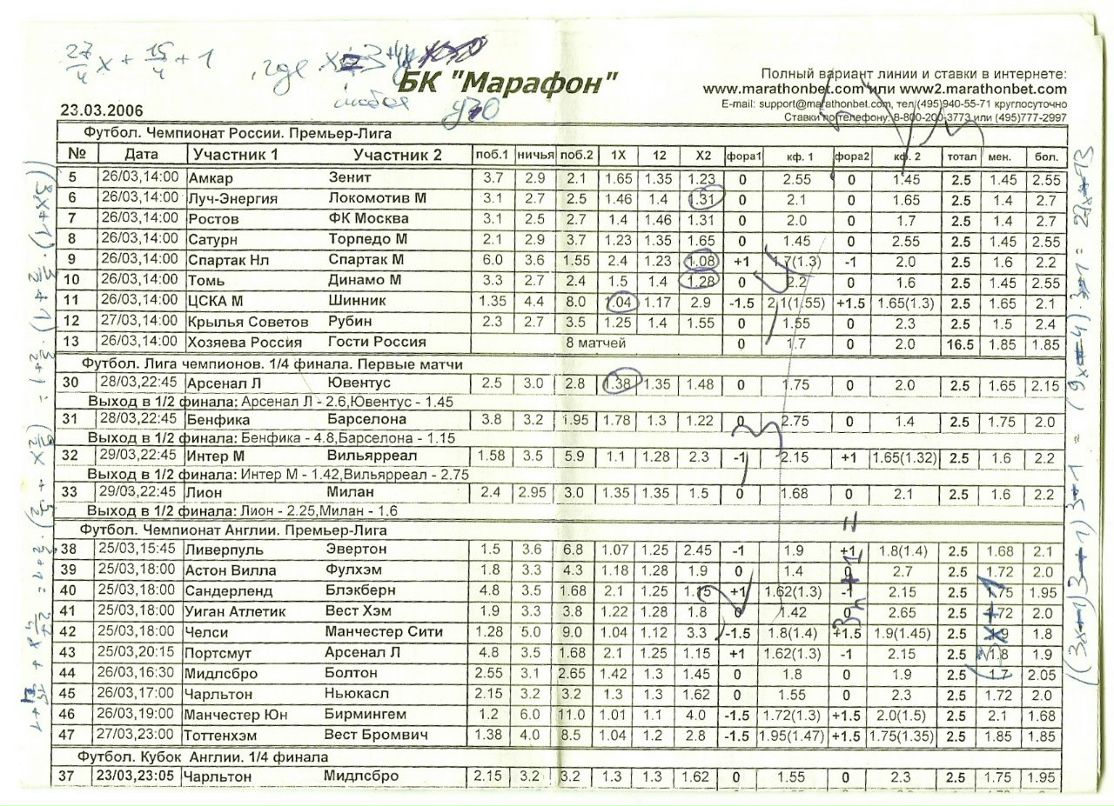 27/4 x + 15/4 + 1
, где x = 3 + 4y
любое y ≥ 0
БК "Марафон"
Полный вариант линии и ставки в интернете:
www.marathonbet.com или www2.marathonbet.com
E-mail: support@marathonbet.com, тел.(495)940-55-71 круглосуточно
23.03.2006
Ставки по телефону: 8-800-200-3773 или (495)777-2997
Футбол. Чемпионат России. Премьер-Лига
№ Дата Участник 1 Участник 2 поб.1 ничья поб.2 1X 12 X2 фора1 кф. 1 фора2 кф. 2 тотал мен. бол.
5 26/03,14:00 Амкар Зенит 3.7 2.9 2.1 1.65 1.35 1.23 0 2.55 0 1.45 2.5 1.45 2.55
6 26/03,14:00 Луч-Энергия Локомотив М 3.1 2.7 2.5 1.46 1.4 1.31 0 2.1 0 1.65 2.5 1.4 2.7
7 26/03,14:00 Ростов ФК Москва 3.1 2.5 2.7 1.4 1.46 1.31 0 2.0 0 1.7 2.5 1.4 2.7
8 26/03,14:00 Сатурн Торпедо М 2.1 2.9 3.7 1.23 1.35 1.65 0 1.45 0 2.55 2.5 1.45 2.55
9 26/03,14:00 Спартак Нл Спартак М 6.0 3.6 1.55 2.4 1.23 1.08 +1 1.7(1.3) -1 2.0 2.5 1.6 2.2
10 26/03,14:00 Томь Динамо М 3.3 2.7 2.4 1.5 1.4 1.28 0 2.2 0 1.6 2.5 1.45 2.55
11 26/03,14:00 ЦСКА М Шинник 1.35 4.4 8.0 1.04 1.17 2.9 -1.5 2.1(1.55) +1.5 1.65(1.3) 2.5 1.65 2.1
12 27/03,14:00 Крылья Советов Рубин 2.3 2.7 3.5 1.25 1.4 1.55 0 1.55 0 2.3 2.5 1.5 2.4
13 26/03,14:00 Хозяева Россия Гости Россия 8 матчей 0 1.7 0 2.0 16.5 1.85 1.85
Футбол. Лига чемпионов. 1/4 финала. Первые матчи
30 28/03,22:45 Арсенал Л Ювентус 2.5 3.0 2.8 1.38 1.35 1.48 0 1.75 0 2.0 2.5 1.65 2.15
Выход в 1/2 финала: Арсенал Л - 2.6,Ювентус - 1.45
31 28/03,22:45 Бенфика Барселона 3.8 3.2 1.95 1.78 1.3 1.22 0 2.75 0 1.4 2.5 1.75 2.0
Выход в 1/2 финала: Бенфика - 4.8,Барселона - 1.15
32 29/03,22:45 Интер М Вильярреал 1.58 3.5 5.9 1.1 1.28 2.3 -1 2.15 +1 1.65(1.32) 2.5 1.6 2.2
Выход в 1/2 финала: Интер М - 1.42,Вильярреал - 2.75
33 29/03,22:45 Лион Милан 2.4 2.95 3.0 1.35 1.35 1.5 0 1.68 0 2.1 2.5 1.6 2.2
Выход в 1/2 финала: Лион - 2.25,Милан - 1.6
Футбол. Чемпионат Англии. Премьер-Лига
38 25/03,15:45 Ливерпуль Эвертон 1.5 3.6 6.8 1.07 1.25 2.45 -1 1.9 +1 1.8(1.4) 2.5 1.68 2.1
39 25/03,18:00 Астон Вилла Фулхэм 1.8 3.3 4.3 1.18 1.28 1.9 0 1.4 0 2.7 2.5 1.72 2.0
40 25/03,18:00 Сандерленд Блэкберн 4.8 3.5 1.68 2.1 1.25 1.15 +1 1.62(1.3) -1 2.15 2.5 1.75 1.95
41 25/03,18:00 Уиган Атлетик Вест Хэм 1.9 3.3 3.8 1.22 1.28 1.8 0 1.42 0 2.65 2.5 1.72 2.0
42 25/03,18:00 Челси Манчестер Сити 1.28 5.0 9.0 1.04 1.12 3.3 -1.5 1.8(1.4) +1.5 1.9(1.45) 2.5 1.9 1.8
43 25/03,20:15 Портсмут Арсенал Л 4.8 3.5 1.68 2.1 1.25 1.15 +1 1.62(1.3) -1 2.15 2.5 1.8 1.9
44 26/03,16:30 Мидлсбро Болтон 2.55 3.1 2.65 1.42 1.3 1.45 0 1.8 0 1.9 2.5 1.7 2.05
45 26/03,17:00 Чарльтон Ньюкасл 2.15 3.2 3.2 1.3 1.3 1.62 0 1.55 0 2.3 2.5 1.72 2.0
46 26/03,19:00 Манчестер Юн Бирмингем 1.2 6.0 11.0 1.01 1.1 4.0 -1.5 1.72(1.3) +1.5 2.0(1.5) 2.5 2.1 1.68
47 27/03,23:00 Тоттенхэм Вест Бромвич 1.38 4.0 8.5 1.04 1.2 2.8 -1.5 1.95(1.47) +1.5 1.75(1.35) 2.5 1.85 1.85
Футбол. Кубок Англии. 1/4 финала
37 23/03,23:05 Чарльтон Мидлсбро 2.15 3.2 3.2 1.3 1.3 1.62 0 1.55 0 2.3 2.5 1.75 1.95